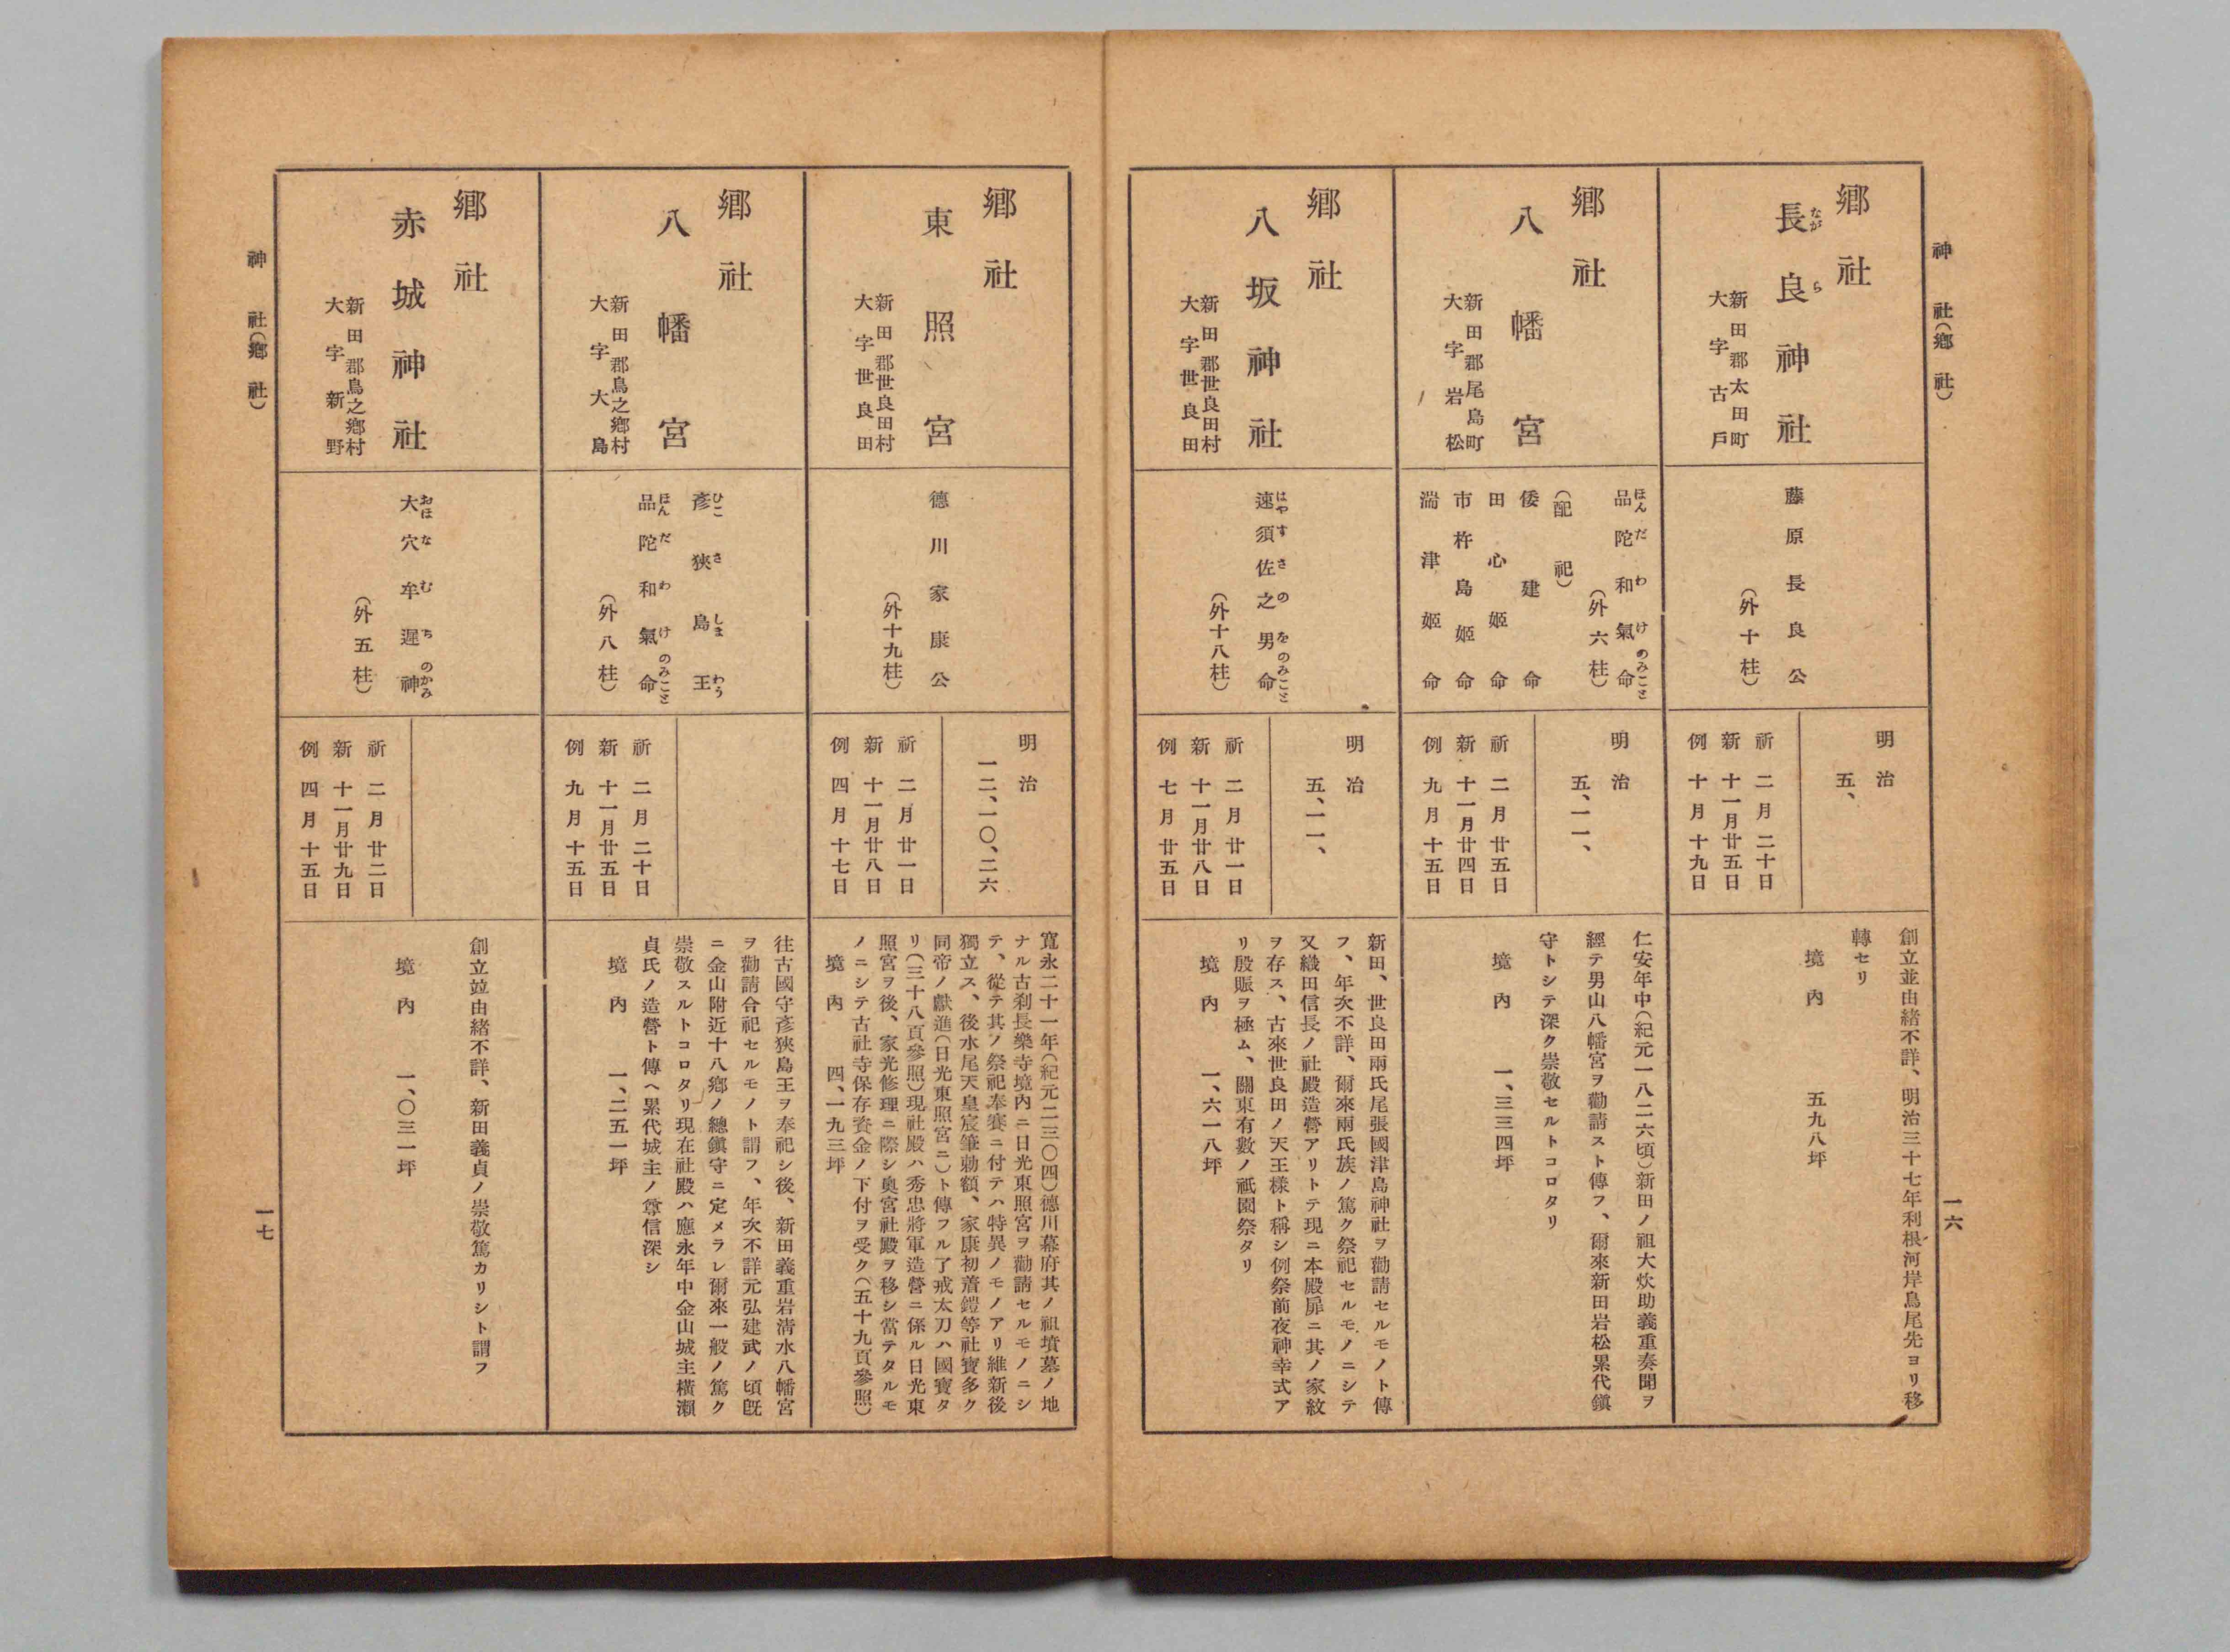 神社(鄕社)
一六
鄕社
長良神社
ながら
新田郡太田町
大字古戸
藤原長良公
(外十柱)
明治
五、
祈 二月二十日
新 十一月廿五日
例 十月十九日
創立並由緒不詳、明治三十七年利根河岸鳥尾先ヨリ移
轉セリ
境內 五九八坪
鄕社
八幡宮
新田郡尾島町
大字岩松
品陀和氣命
ほんだわけのみこと
(外六柱)
(配祀)
倭建命
田心姬命
市杵島姬命
湍津姬命
明治
五、一一、
祈 二月廿五日
新 十一月廿四日
例 九月十五日
仁安年中(紀元一八二六頃)新田ノ祖大炊助義重奏聞ヲ
經テ男山八幡宮ヲ勸請スト傳フ、爾來新田岩松累代鎭
守トシテ深ク崇敬セルトコロタリ
境內 一、三三四坪
鄕社
八坂神社
新田郡世良田村
大字世良田
速須佐之男命
はやすさのをのみこと
(外十八柱)
明治
五、一一、
祈 二月廿一日
新 十一月廿八日
例 七月廿五日
新田、世良田兩氏尾張國津島神社ヲ勸請セルモノト傳
フ、年次不詳、爾來兩氏族ノ篤ク祭祀セルモノニシテ
又織田信長ノ社殿造營アリトテ現ニ本殿扉ニ其ノ家紋
ヲ存ス、古來世良田ノ天王樣ト稱シ例祭前夜神幸式ア
リ殷賑ヲ極ム、關東有數ノ祇園祭タリ
境內 一、六一八坪
鄕社
東照宮
新田郡世良田村
大字世良田
德川家康公
(外十九柱)
明治
一二、一〇、二六
祈 二月廿一日
新 十一月廿八日
例 四月十七日
寬永二十一年(紀元二三〇四)德川幕府其ノ祖墳墓ノ地
ナル古刹長樂寺境內ニ日光東照宮ヲ勸請セルモノニシ
テ、從テ其ノ祭祀奉賽ニ付テハ特異ノモノアリ維新後
獨立ス、後水尾天皇宸筆勅額、家康初着鎧等社寶多ク
同帝ノ獻進(日光東照宮ニ)ト傳フル了戒太刀ハ國寶タ
リ(三十八頁參照)現社殿ハ秀忠將軍造營ニ係ル日光東
照宮ヲ後、家光修理ニ際シ奧宮社殿ヲ移シ當テタルモ
ノニシテ古社寺保存資金ノ下付ヲ受ク(五十九頁參照)
境內 四、一九三坪
鄕社
八幡宮
新田郡鳥之鄕村
大字大島
彥狹島王
ひこさしまわう
品陀和氣命
ほんだわけのみこと
(外八柱)
祈 二月二十日
新 十一月廿五日
例 九月十五日
往古國守彥狹島王ヲ奉祀シ後、新田義重岩淸水八幡宮
ヲ勸請合祀セルモノト謂フ、年次不詳元弘建武ノ頃旣
ニ金山附近十八鄕ノ總鎭守ニ定メラレ爾來一般ノ篤ク
崇敬スルトコロタリ現在社殿ハ應永年中金山城主橫瀨
貞氏ノ造營ト傳ヘ累代城主ノ尊信深シ
境內 一、二五一坪
鄕社
赤城神社
新田郡鳥之鄕村
大字新野
大穴牟遲神
おほなむちのかみ
(外五柱)
祈 二月廿二日
新 十一月廿九日
例 四月十五日
創立竝由緒不詳、新田義貞ノ崇敬篤カリシト謂フ
境內 一、〇三一坪
神社(鄕社)
一七